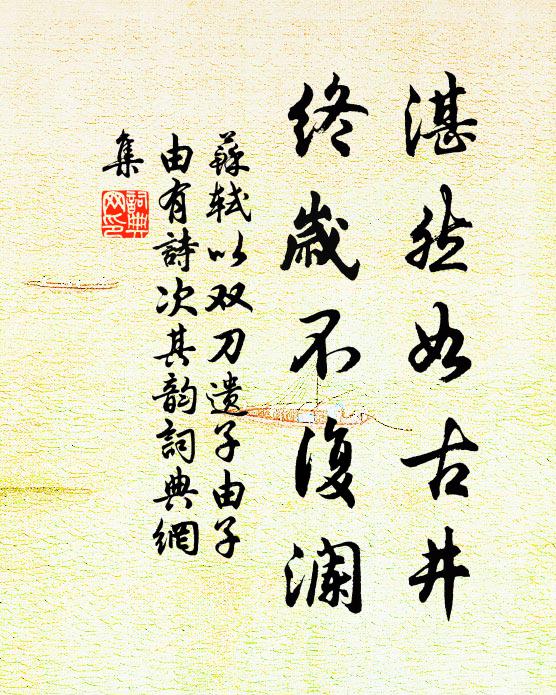 湛然如古井
終歲不復瀾
蘇軾以双刀遺子由子
由有詩次其韵詞典網
集
詞典
网印